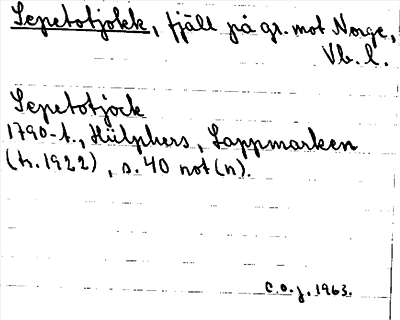 Sepetotjokk, fjäll på gr. mot Norge,
Vb. l.
Sepetotjock
1790-t., Hülphers, Lappmarken
(tr. 1922), s. 40 not (n).
C.O.J. 1963.